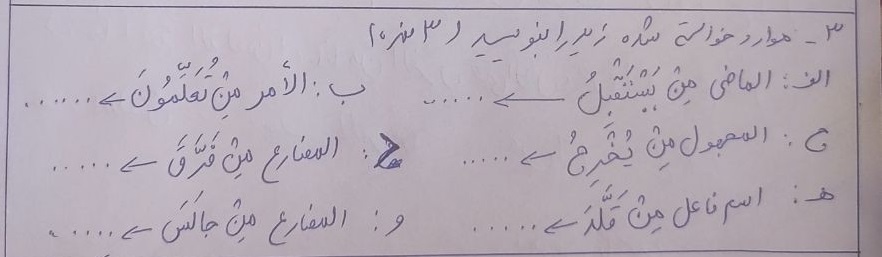 ۳ - موارد خواسته شده زیر را بنویسید (۳ نمره)
الف: الماضی مِنْ یَسْتَقْبِلُ ← ...... ب: الأمر مِنْ تُعَلِّمُونَ ← ......
ج: المجهول مِنْ یُخْرِجُ ← ..... د: المضارع مِنْ فَرَّقَ ← .....
هـ: اسم فاعل مِنْ قَلَّدَ ← ...... و: المضارع مِنْ جالَسَ ← .....